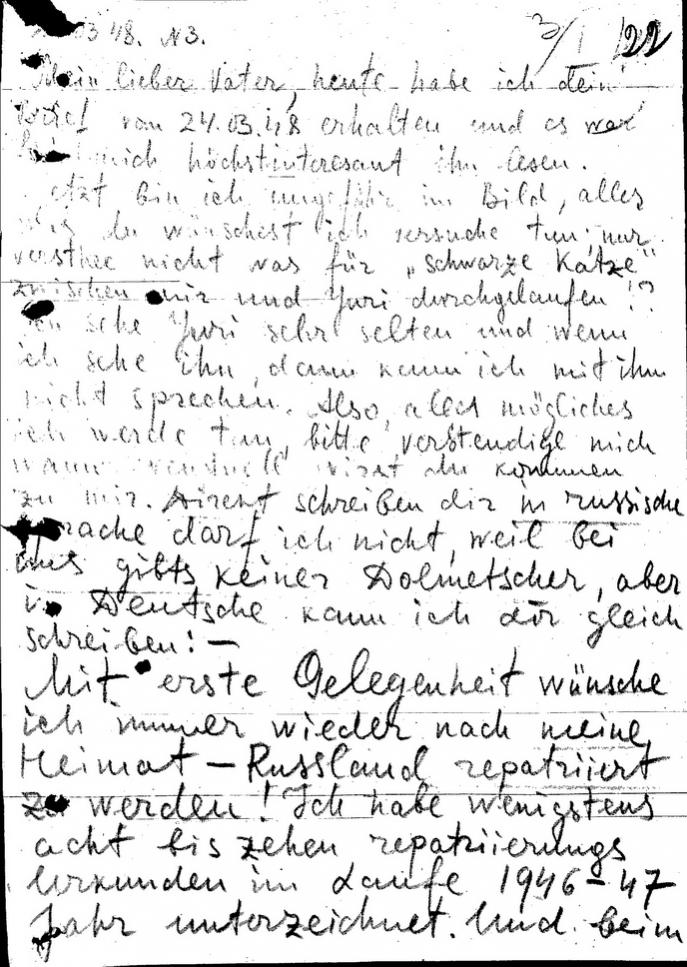 03 48. N3.
3/I 22
Mein lieber Vater, heute habe ich dein
Brief von 24.03.48 erhalten und es war
mich höchstinteresant ihn lesen.
Jetzt bin ich ungefähr im Bild, alles
was du wünschest ich versuche tun, nur
versthee nicht was für „schwarze Katze"
zwischen mir und Yuri durchgelaufen!?
Ich sehe Yuri sehr selten und wenn
ich sehe ihn, dann kann ich mit ihm
nicht sprechen. Also, alles mögliches
ich werde tun, bitte verstendige mich
wann eventuell wirst du kommen
zu mir. Direkt schreiben dir in russische
Sprache darf ich nicht, weil bei
uns gibts keiner Dolmetscher, aber
in Deutsche kann ich dir gleich
schreiben: —
Mit erste Gelegenheit wünsche
ich immer wieder nach meine
Heimat – Russland repatriiert
zu werden! Ich habe wenigstens
acht bis zehen repatriierungs
Urkunden im Laufe 1946–47
Jahr unterzeichnet. Und beim